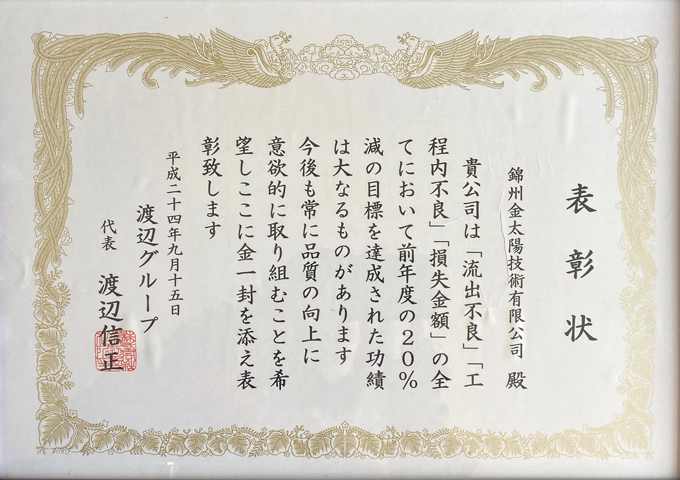 表彰状
錦州金太陽技術有限公司 殿
貴公司は「流出不良」「工
程内不良」「損失金額」の全
てにおいて前年度の20%
減の目標を達成された功績
は大なるものがあります
今後も常に品質の向上に
意欲的に取り組むことを希
望しここに金一封を添え表
彰致します
平成二十四年九月十五日
渡辺グループ
代表 渡辺信正